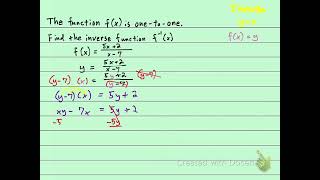 The function f(x) is one-to-one.
Find the inverse function f⁻¹(x)
f(x) = y
f(x) = 5x+2 / x-7
y = 5x+2 / x-7
(y-7) (x) = 5y+2 / (y-7) (y-7)
(y-7)(x) = 5y + 2
xy - 7x = 5y + 2
-5 -5y
Created with Doceri